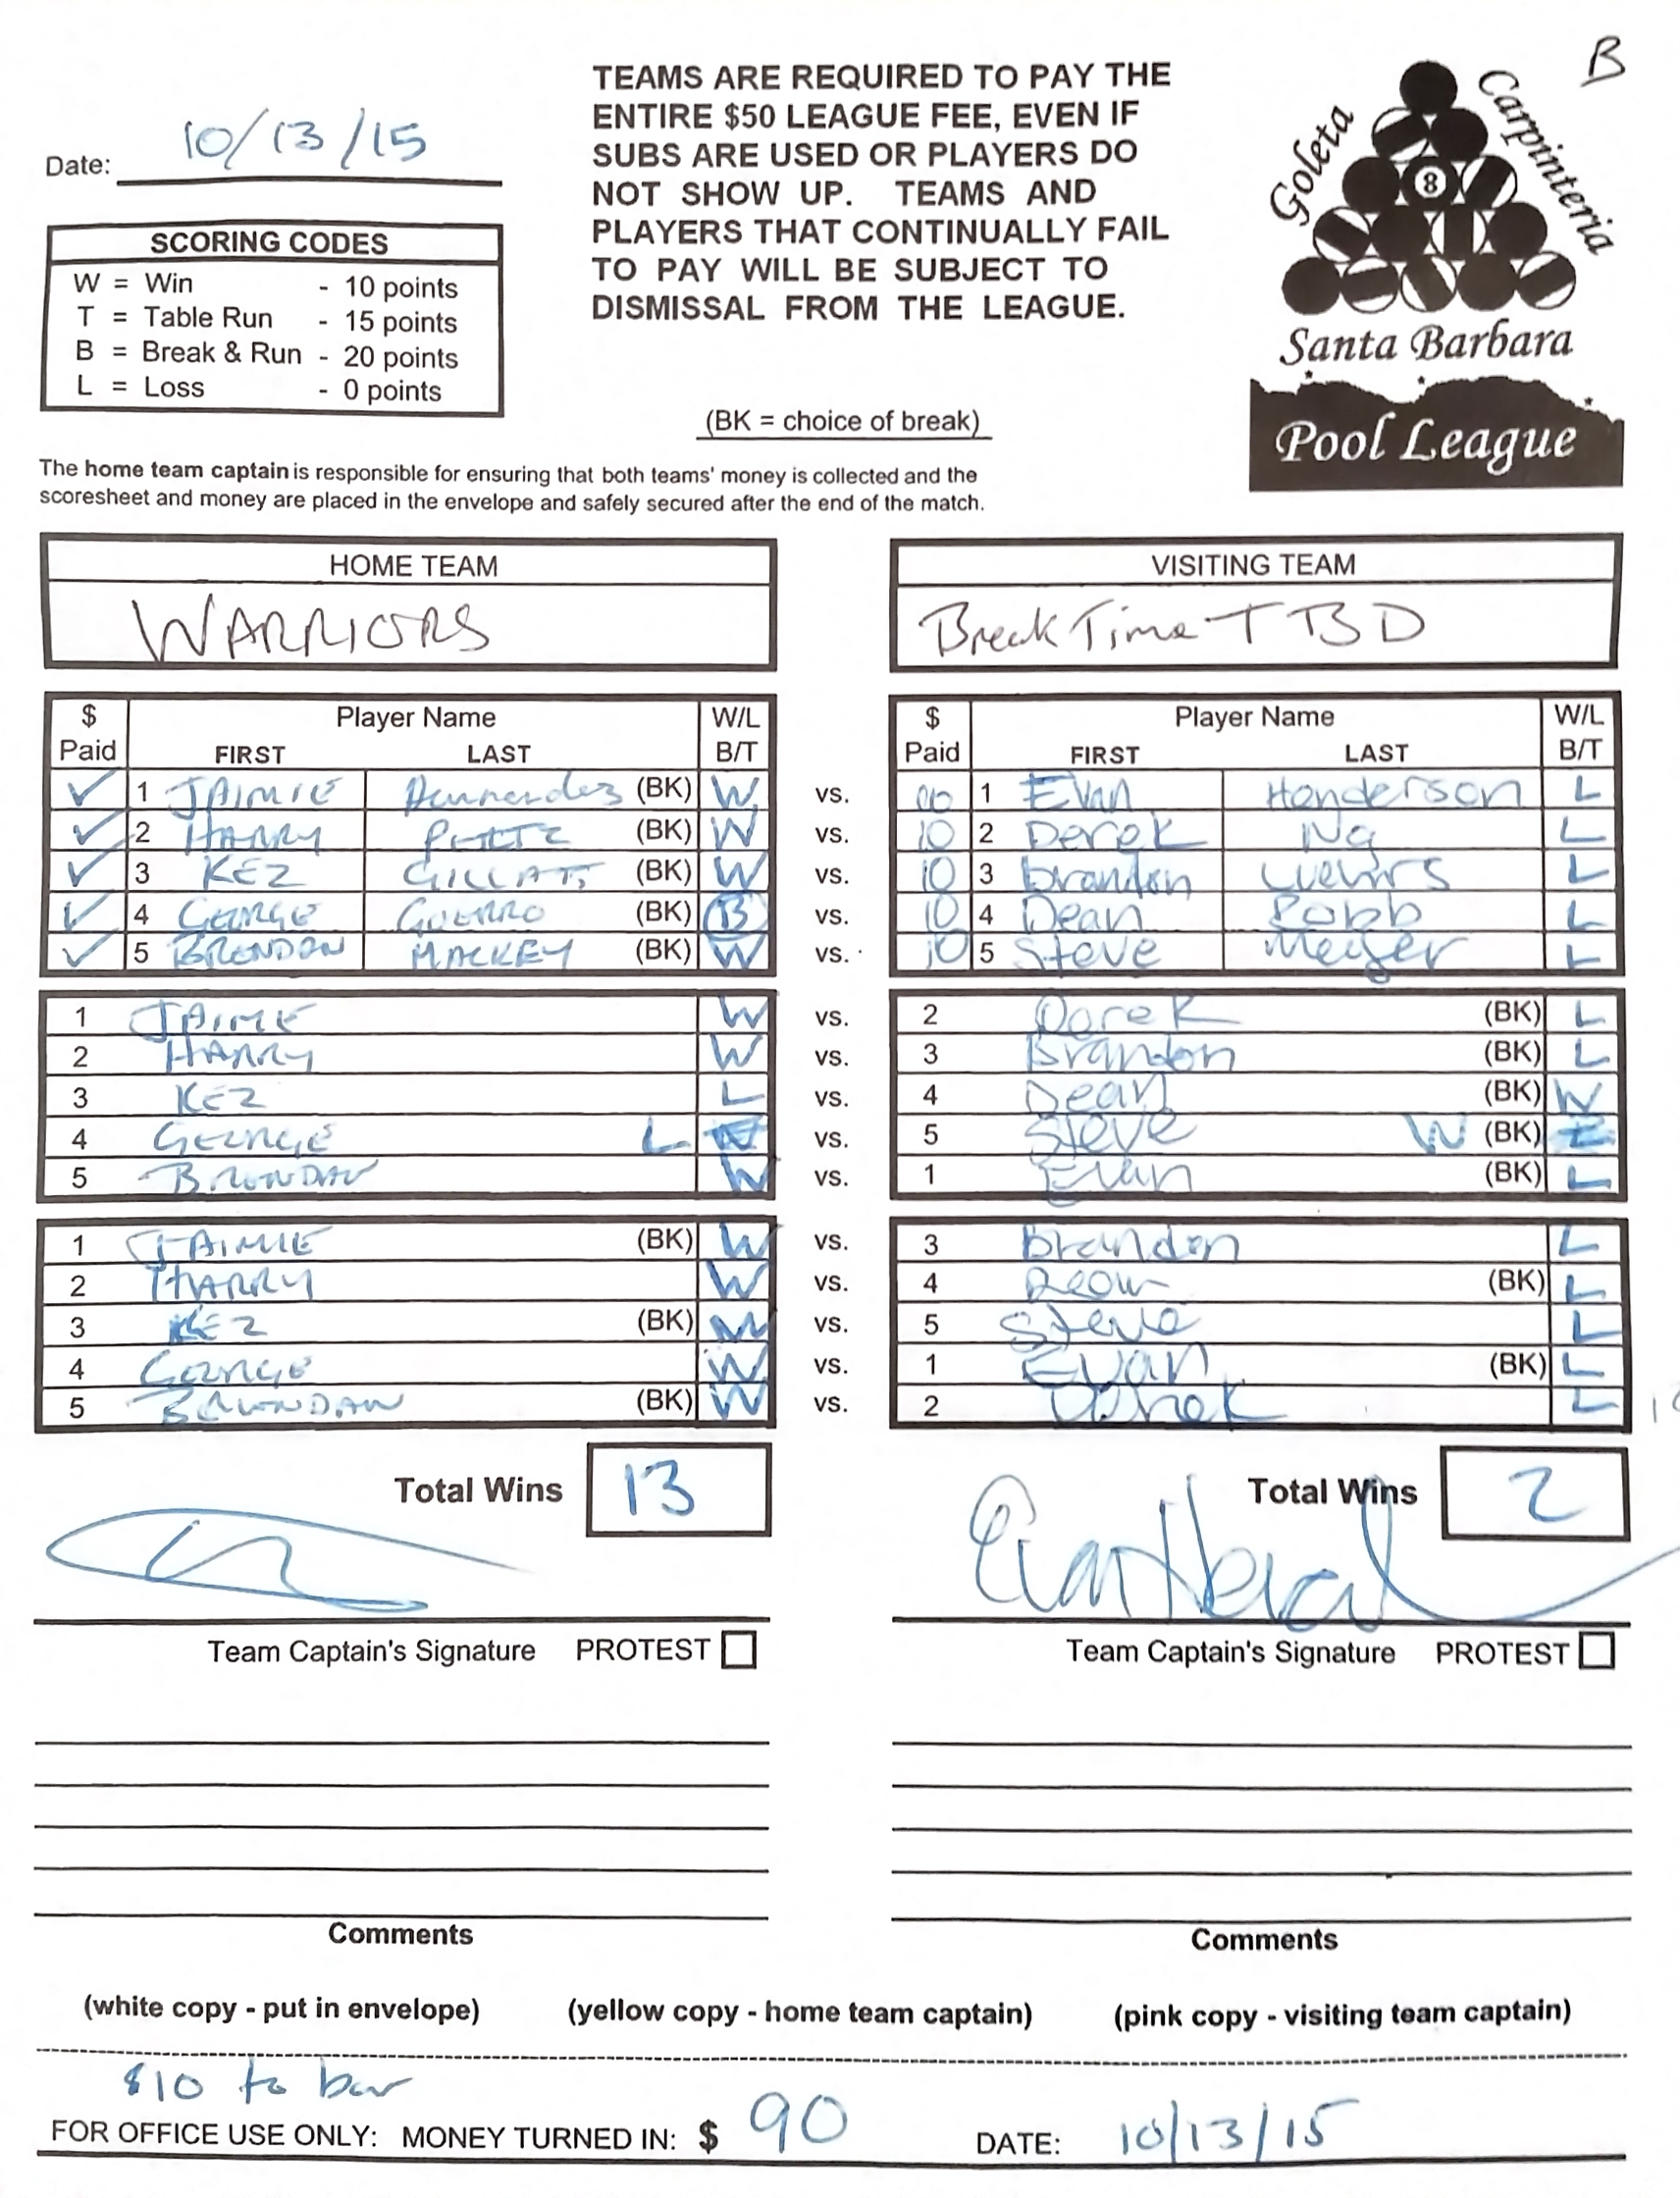 B
Date: 10/13/15
TEAMS ARE REQUIRED TO PAY THE
ENTIRE $50 LEAGUE FEE, EVEN IF
SUBS ARE USED OR PLAYERS DO
NOT SHOW UP. TEAMS AND
PLAYERS THAT CONTINUALLY FAIL
TO PAY WILL BE SUBJECT TO
DISMISSAL FROM THE LEAGUE.
Goleta
Carpinteria
8
Santa Barbara
Pool League
SCORING CODES
W = Win - 10 points
T = Table Run - 15 points
B = Break & Run - 20 points
L = Loss - 0 points
(BK = choice of break)
The home team captain is responsible for ensuring that both teams' money is collected and the
scoresheet and money are placed in the envelope and safely secured after the end of the match.
HOME TEAM VISITING TEAM
WARRIORS Break Time TBD
$ Player Name W/L $ Player Name W/L
Paid FIRST LAST B/T Paid FIRST LAST B/T
✓ 1 JAIMIE (BK) W vs. 1 Evan Henderson L
✓ 2 HARRY (BK) W vs. 10 2 Derek Ng L
✓ 3 KEZ (BK) W vs. 10 3 brandon L
✓ 4 GEORGE GUERRO (BK) B vs. 10 4 Dean Robb L
✓ 5 BRENDAN MACKEY (BK) W vs. 10 5 Steve Meyer L
1 JAIME W vs. 2 Derek (BK) L
2 HARRY W vs. 3 Brandon (BK) L
3 KEZ L vs. 4 Dean (BK) W
4 GEORGE L vs. 5 Steve W (BK)
5 BRENDAN W vs. 1 Evan (BK) L
1 JAIMIE (BK) W vs. 3 Brandon L
2 HARRY W vs. 4 (BK) L
3 KEZ (BK) W vs. 5 Steve L
4 GEORGE W vs. 1 Evan (BK) L
5 BRENDAN (BK) W vs. 2 Derek L
Total Wins 13 Total Wins 2
Team Captain's Signature PROTEST Team Captain's Signature PROTEST
Comments Comments
(white copy - put in envelope) (yellow copy - home team captain) (pink copy - visiting team captain)
$10 to bar
FOR OFFICE USE ONLY: MONEY TURNED IN: $ 90 DATE: 10/13/15